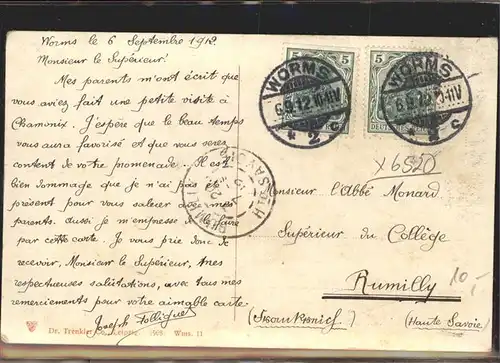 Worms le 6 Septembre 1912.
Monsieur le Supérieur.
Mes parents m'ont écrit que
vous aviez fait une petite visite à
Chamonix. J'espère que le beau temps
vous aura favorisé et que vous serez
content de votre promenade. Il est
bien dommage que je n'ai pas été
présent pour vous saluer avec mes
parents. aussi je m'empresse de le faire
par cette carte. Je vous prie donc de
recevoir, Monsieur le Supérieur, mes
respectueuses salutations, avec tous mes
remerciements pour votre aimable carte.
Joseph
Dr. Trenkler Co., Leipzig. 1909. Wms. 11
5 5 5
WORMS
6.9.12.10-11V
* 2 c
WORMS
6.9.12.10-11V
c
X6520
Monsieur l'Abbé Monard
Supérieur du Collège
Rumilly
10,-
(Frankreich)
(Haute Savoie)